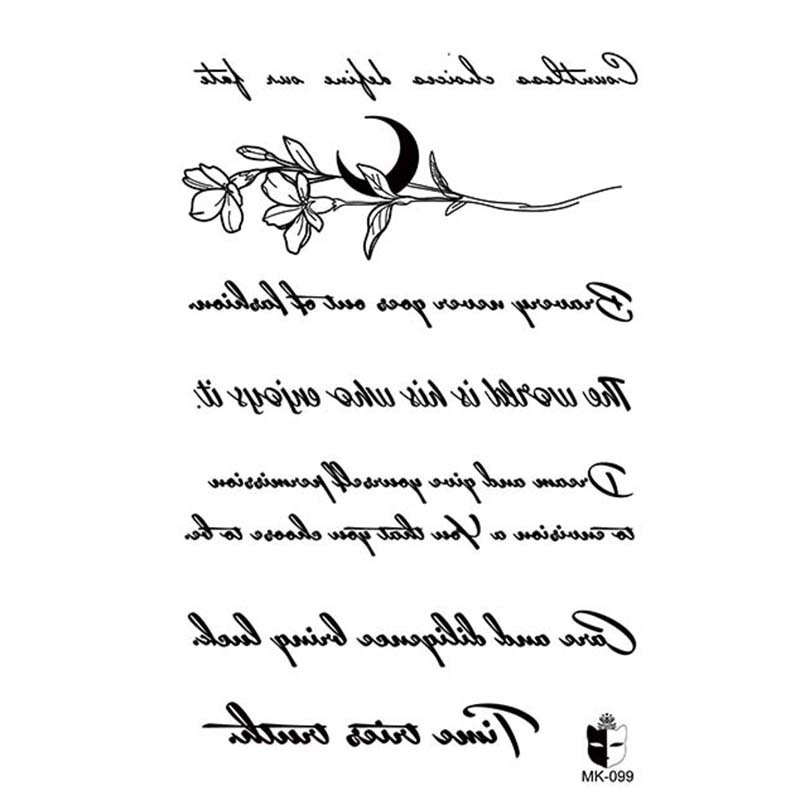 Countless choices define our fate
Bravery never goes out of fashion.
The world is his who enjoys it.
Dream and give yourself permission
to envision a You that you choose to be.
Care and diligence bring luck.
Time tries truth.
MK-099